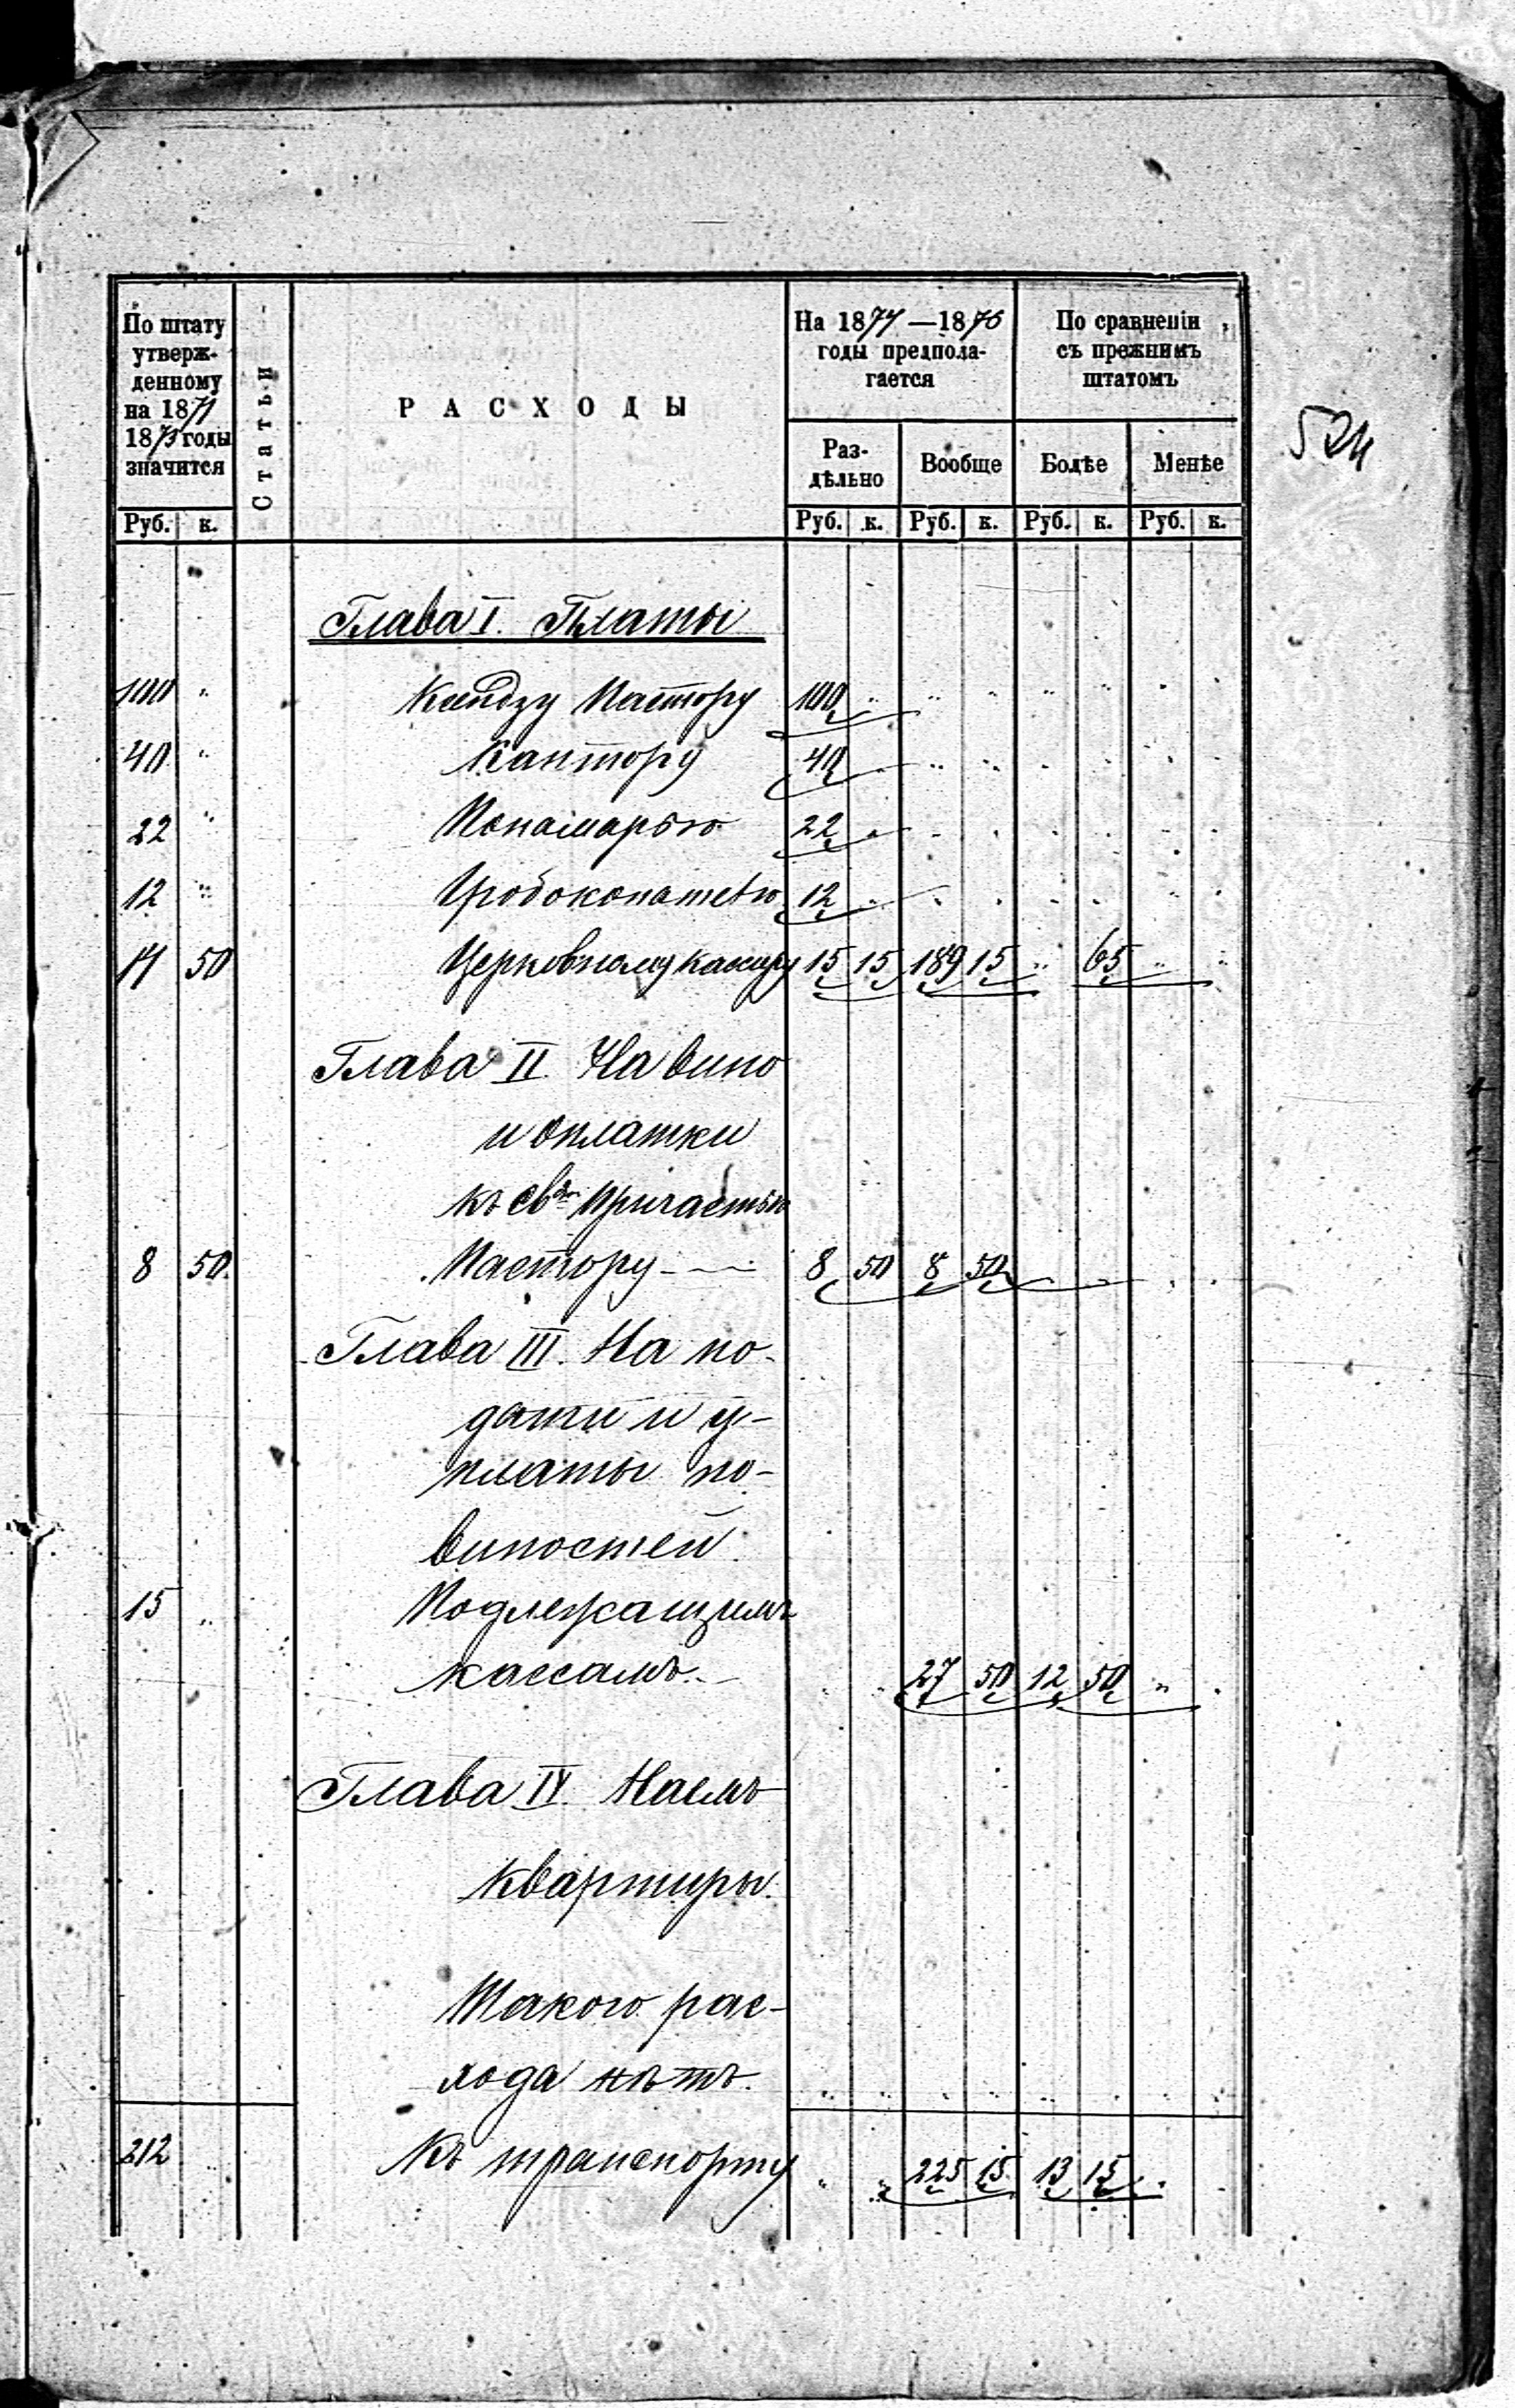 По штату утверж-денному на 1871 1873 годы значится
Статьи
РАСХОДЫ
На 1874—1876 годы предпола-гается
По сравненіи съ прежнимъ штатомъ
Раз-дѣльно Вообще Болѣе Менѣе
Руб. к. Руб. к. Руб. к. Руб. к. Руб. к.
524
Глава I. Платы
100 " Ксендзу Пастору 100 " " " " " " "
40 " Кантору 40 " " " " " " "
22 " Понамарью 22 " " " " " " "
12 " Гробокопателю 12 " " " " " " "
14 50 Церковному касиру 15 15 189 15 " 65 " "
Глава II. На вино
и оплатки
къ свт. причастью
8 50. Пастору - — 8 50 8 50 " " " "
Глава III. На по-
дати и у-
платы по-
виностей
15 " Подлежащимъ
кассамъ.- " " 27 50 12 50 " "
Глава IV. Наемъ
квартиры.
Такого рас-
хода нѣтъ. " " " " " " " "
212 " Къ транспорту " " 225 15 13 15 " "